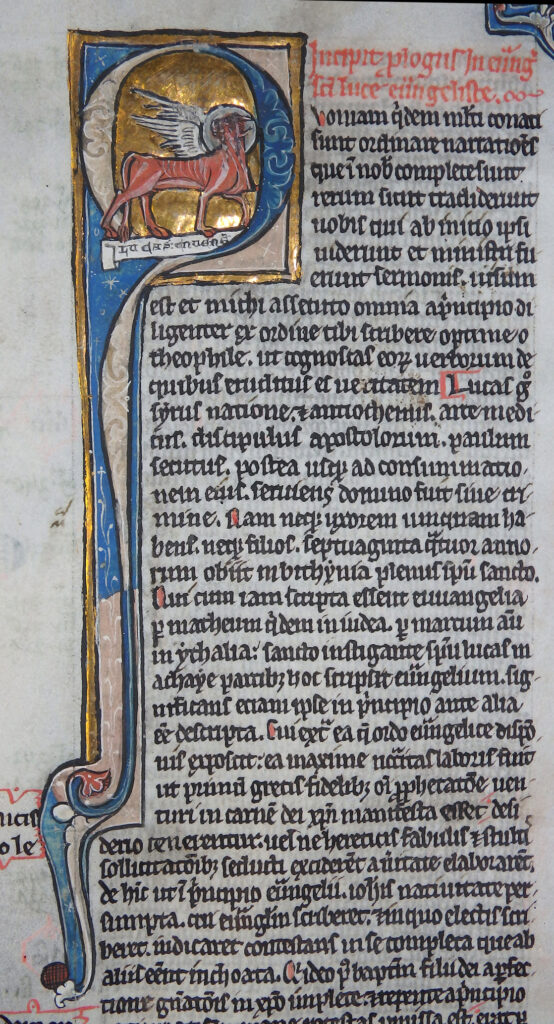 Incipit plogus in euu̅ng̅
sc̅i luce euu̅ngeliste.
Quoniam q̇dem ml̅ti conati
sunt ordinare narratio̅es
que i̅ nob̅ complete sunt
rerum sicut tradiderunt
nobis qui ab initio ipsi
uiderunt et ministri fu
erunt sermonis. uisum
lucas en uu̅ens
est et michi assecuto omnia ap̅ncipio di
ligenter ex ordine tibi scribere optime o
theophile. ut cognoscas eoꝝ uerborum de
quibus eruditus es ueritatem Lucas
syrus natione. ⁊ antiochensis. arte medi
cus. discipulus apostolorum. paulum
secutus. postea usq; ad consummatio
nem eius. seruiens domino fuit sine cri
mine. Nam neq; uxorem umquam ha
bens. neq; filios. septuaginta q̅tuor anno
rum obiit in bithynia plenus sp̅u sancto.
Qui cum iam scripta essent euuangelia
ꝑ matheum q̇dem in iudea. ꝑ marcum au̅
in ychalia: sancto instigante sp̅u lucas in
achaye partib; hoc scripsit euu̅ngelium. sig
nificans eciam ipse in p̅ncipio ante alia
ee̅ descripta. Cui ext̅ ea q̅ ordo euu̅ngelice dispo̅
nis exposcit: ea maxime nccitas laboris fuit
ut primu̅ grecis fidelib; o̅i ꝓphetato̅e uen
turi in carne̅ dei xp̅i manifesta esset desi
derio tenerentur. uel ne hereticis fabulis ⁊ stultis
sollicitato̅ib; seducti excidere̅t a u̅itate elaboraret.
de hi̅c ut i̅ p̅ncipio euu̅ngelii. ioh̅is natiuitate per
sumpta. cui euu̅glm scriberet. ⁊ in quo electis scri
beret. iudicaret contestans in se completa que ab
aliis ee̅nt inchoata. Cui ideo p̅ baptm̅ filii dei a ꝑfec
tione gn̅ato̅is in xp̅o implete. ⁊ repente ap̅ncipio